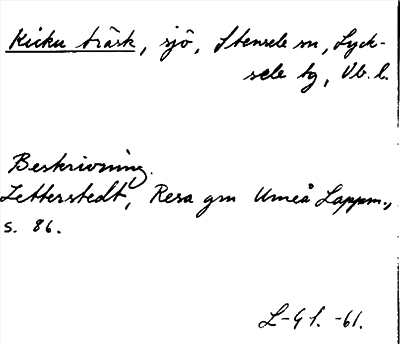 Kicku träsk, sjö, Stensele sn, Lyck-
sele tg, Vb. l.
Beskrivning.
Zetterstedt, Resa gm Umeå Lappm.,
s. 86.
L-G l. -61.